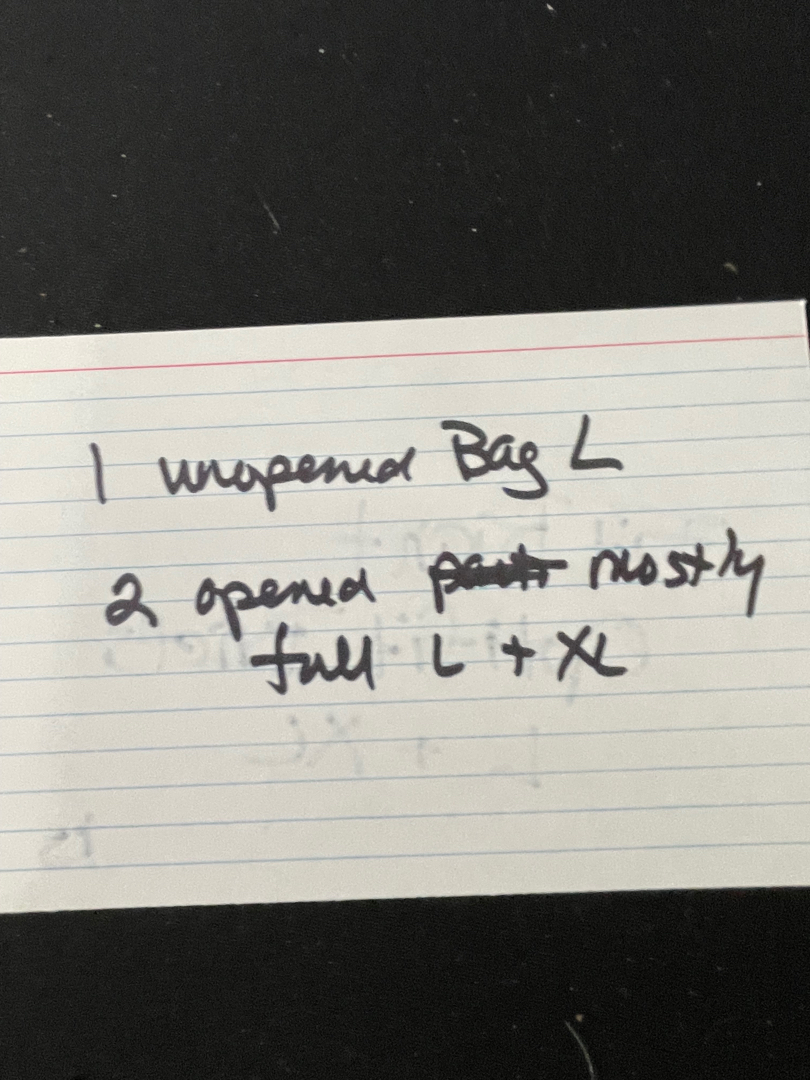 1 unopened Bag L
2 opened mostly
full L + XL